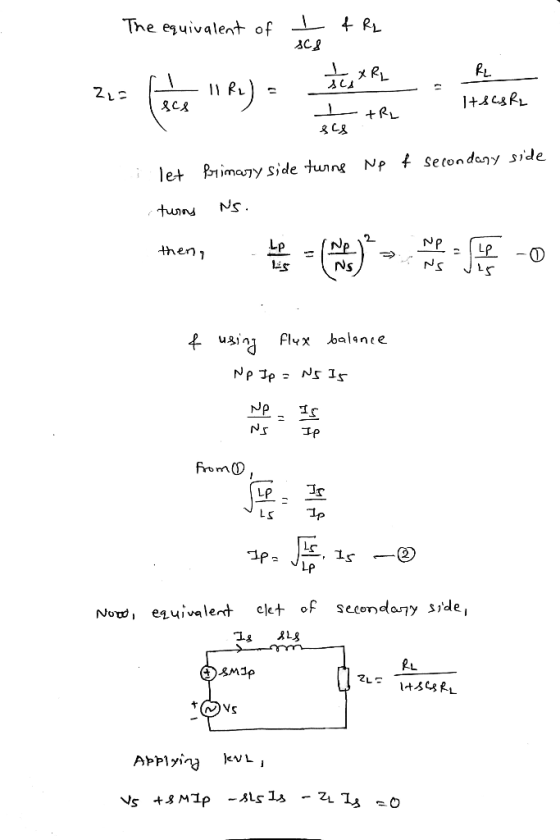 The equivalent of 1/sCs & RL
ZL = (1/sCs || RL) = (1/sCs × RL)/(1/sCs + RL) = RL/(1+sCsRL)
let Primary side turns Np & secondary side
turns Ns.
then, Lp/Ls = (Np/Ns)² ⇒ Np/Ns = √(Lp/Ls) - ①
& using flux balance
Np Ip = Ns Is
Np/Ns = Is/Ip
From ①,
√(Lp/Ls) = Is/Ip
Ip = √(Ls/Lp) . Is - ②
Now, equivalent ckt of secondary side,
Is sLs
+ sMIp
ZL = RL/(1+sCsRL)
+ - Vs
Applying KVL,
Vs + sMIp - sLs Is - ZL Is = 0